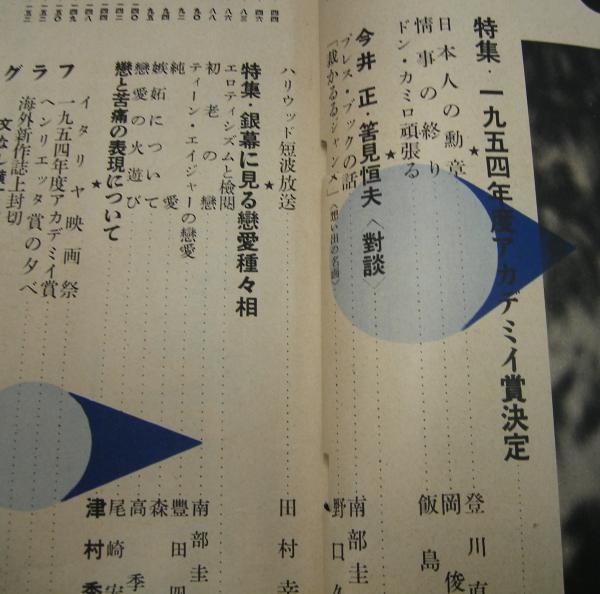 特集・一九五四年度アカデミイ賞決定
日本人の勲章 登川直
情事の終り 岡俊
ドン・カミロ頑張る 飯島
今井正・筈見恒夫〈對談〉
プレス・ブックの話 南部圭
「裁かるゝジャンヌ」〈想い出の名画〉 野口久
ハリウッド短波放送 田村幸
特集・銀幕に見る戀愛種々相
エロティシズムと檢閲
初老の戀 南部圭
ティーン・エイジャーの戀愛
純愛 豐田四
嫉妬について 森
戀愛の火遊び 高季
戀と苦痛の表現について 尾崎宏
津村秀
イタリヤ映画祭
一九五四年度アカデミイ賞
ヘンリエッタ賞の夕べ
海外新作誌上封切
フラグ